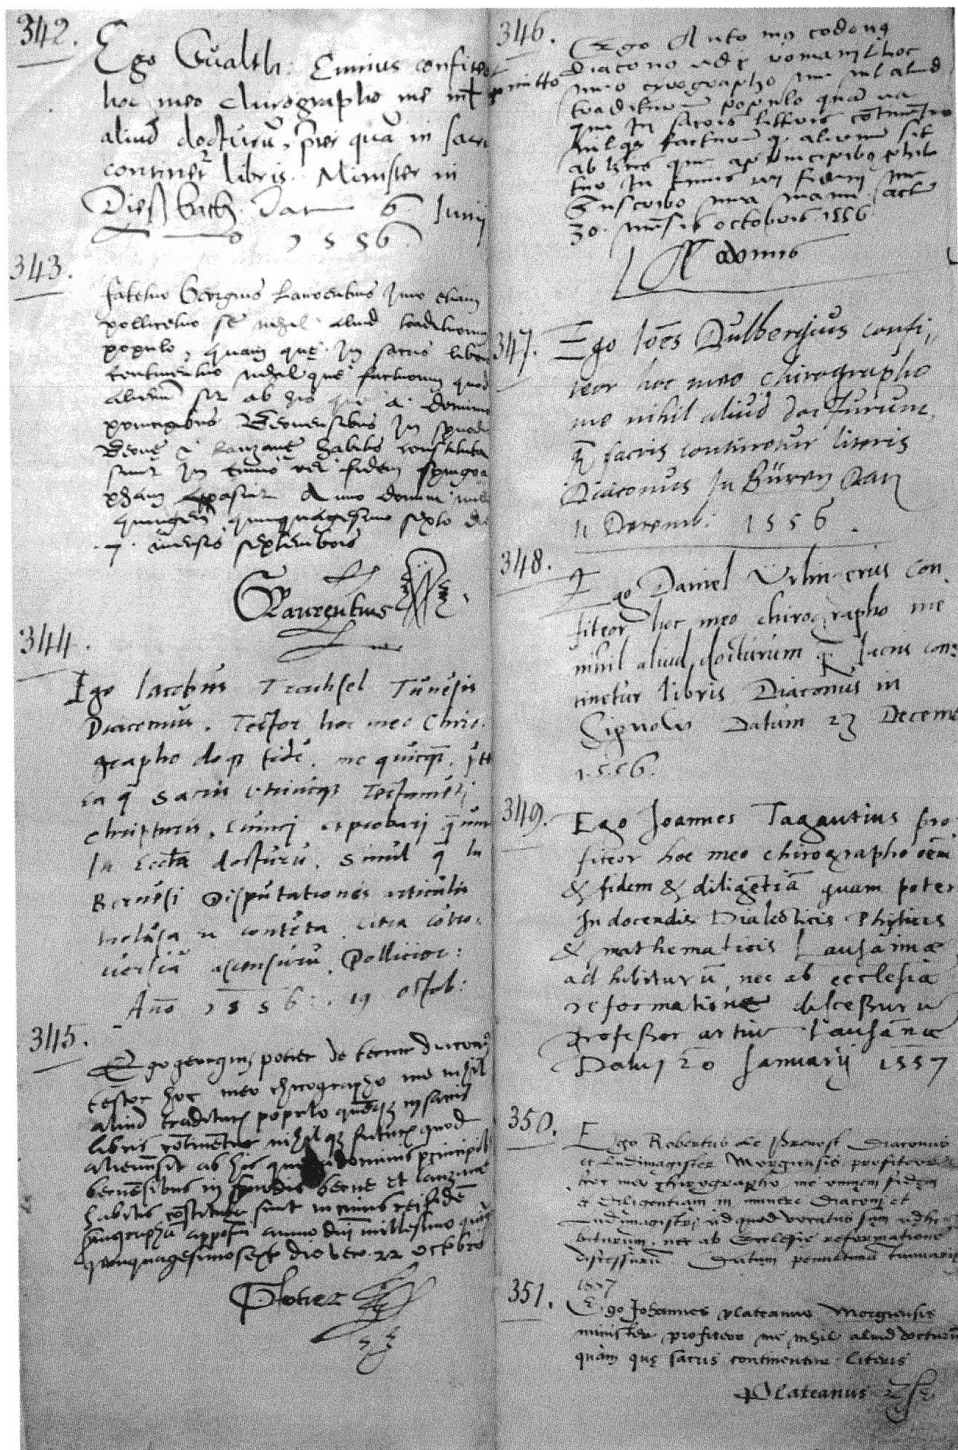 342.
Ego Gualth: Ennius confiteo
hoc meo chirographo me nihil
aliud docturū, preter quā in sacris
continet libris. Minister in
Diesbach. Dat 6 Junij
1556
343.
fateor Georgius Laurentius Imo etiam
polliceor se nihil aliud traditurum
populo, quam quę in sacris libris
continentur nihilque facturum quod
alienū sit ab his quę a dominis
principibus Bernensibus in synodis
Berne & Lauzane habitis constituta
sunt In cuius rei fidem syngra
pham apposui Anno domini
quingen quinquagesimo sexto die
7. mensis septembris
GLaurentius
344.
Ego Iacobus Trachsel Tunēsis
Diaconus. Testor hoc meo chiro,
grapho
ea q̄ sacris utriusque Testamēti
scripturis,
In Eccīa docturū. Simul q̄ In
Bernēsi Disputationis articulis
inclusa & contēta citra cōtro,
versiā Polliceor:
Año 1556. 19 octob:
345.
Ego georgius potier de diaconus
testor hoc meo chirographo me nihil
aliud traditurū populo in sacris
libris cōtinentur nihilque facturū quod
alienū sit ab his que a dominis principib
bernēsibus in synodis berne et lauzane
habitis constituta sunt in cuius rei fidē
apposui anno dñi millesimo quing
quinquagesimo sexto die vero 22 octobro
Potier
346.
Ego Antonius codonus
Diaconus romani hoc
promitto meo cirographo me nil aliud
traditurum populo quam
que in sacris litteris continentur
nilque facturum quod alienum sit
ab his que a principibus
In cuius rei fidem me
suscribo mea manu. act
30. mēsis octobris 1556
347.
Ego Ioēs Dulbergius confi,,
teor hoc meo chirographo
me nihil aliud docturum,
q̄ sacris continetur literis
Diaconus In Büren Dat
11 Decemb: 1556.
348.
Ego Daniel con,
fiteor hoc meo chirographo me
nihil aliud docturum q̄ sacris con=
tinetur libris Diaconus in
Signow Datum 23 Decemb
1556.
349.
Ego Joannes Tagautius pro
fiteor hoc meo chirographo oēm
& fidem & diligētiā quam poter
In docendis Dialecticis Physicis
& mathematicis Lausannæ
adhibiturū, nec ab ecclesiæ
reformatione discessurū
professor artiū Lausānæ
Datū 20 Januarij 1557
350.
Ego Robertus Le Prevost Diaconus
et Ludimagister Morgiensis profiteor
hoc meo chirographo me omnem fidem
et diligentiam in munere Diaconi et
Ludimagistri, ad quod vocatus sum adhi
biturum, nec ab Ecclesię reformatione
discessurū Datum penultima Januarij
1557
351.
Ego Johannes plateanus Morgiensis
minister profiteor me nihil aliud docturū
quàm quę sacris continentur literis
Plateanus